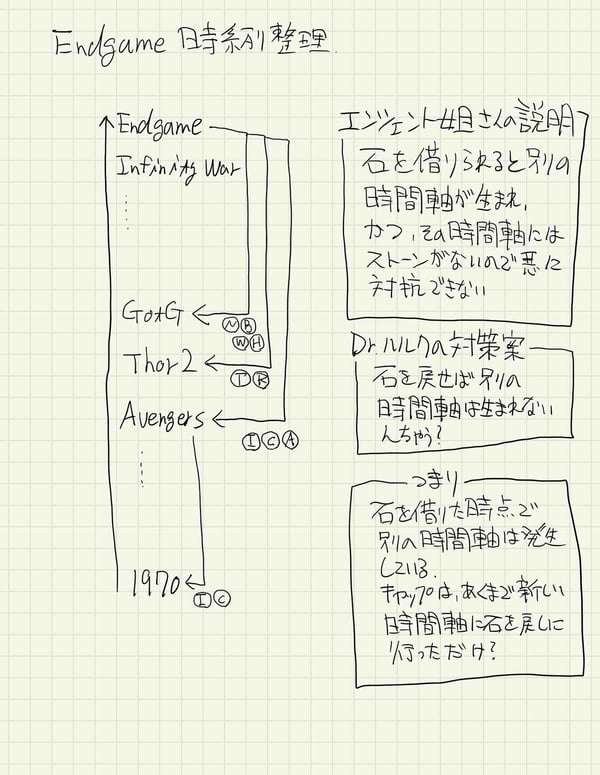 Endgame 時系列整理.
Endgame
Infinity War
GotG
N B
W H
Thor 2
T R
Avengers
I C A
1970
I C
エンジェント姐さんの説明
石を借りられると別の
時間軸が生まれ,
かつ,その時間軸には
ストーンがないので悪に
対抗できない
Dr.ハルクの対策案
石を戻せば別の
時間軸は生まれない
んちゃう?
つまり
石を借りた時点で
別の時間軸は発生
している.
キャップは,あくまで新しい
時間軸に石を戻しに
行っただけ?